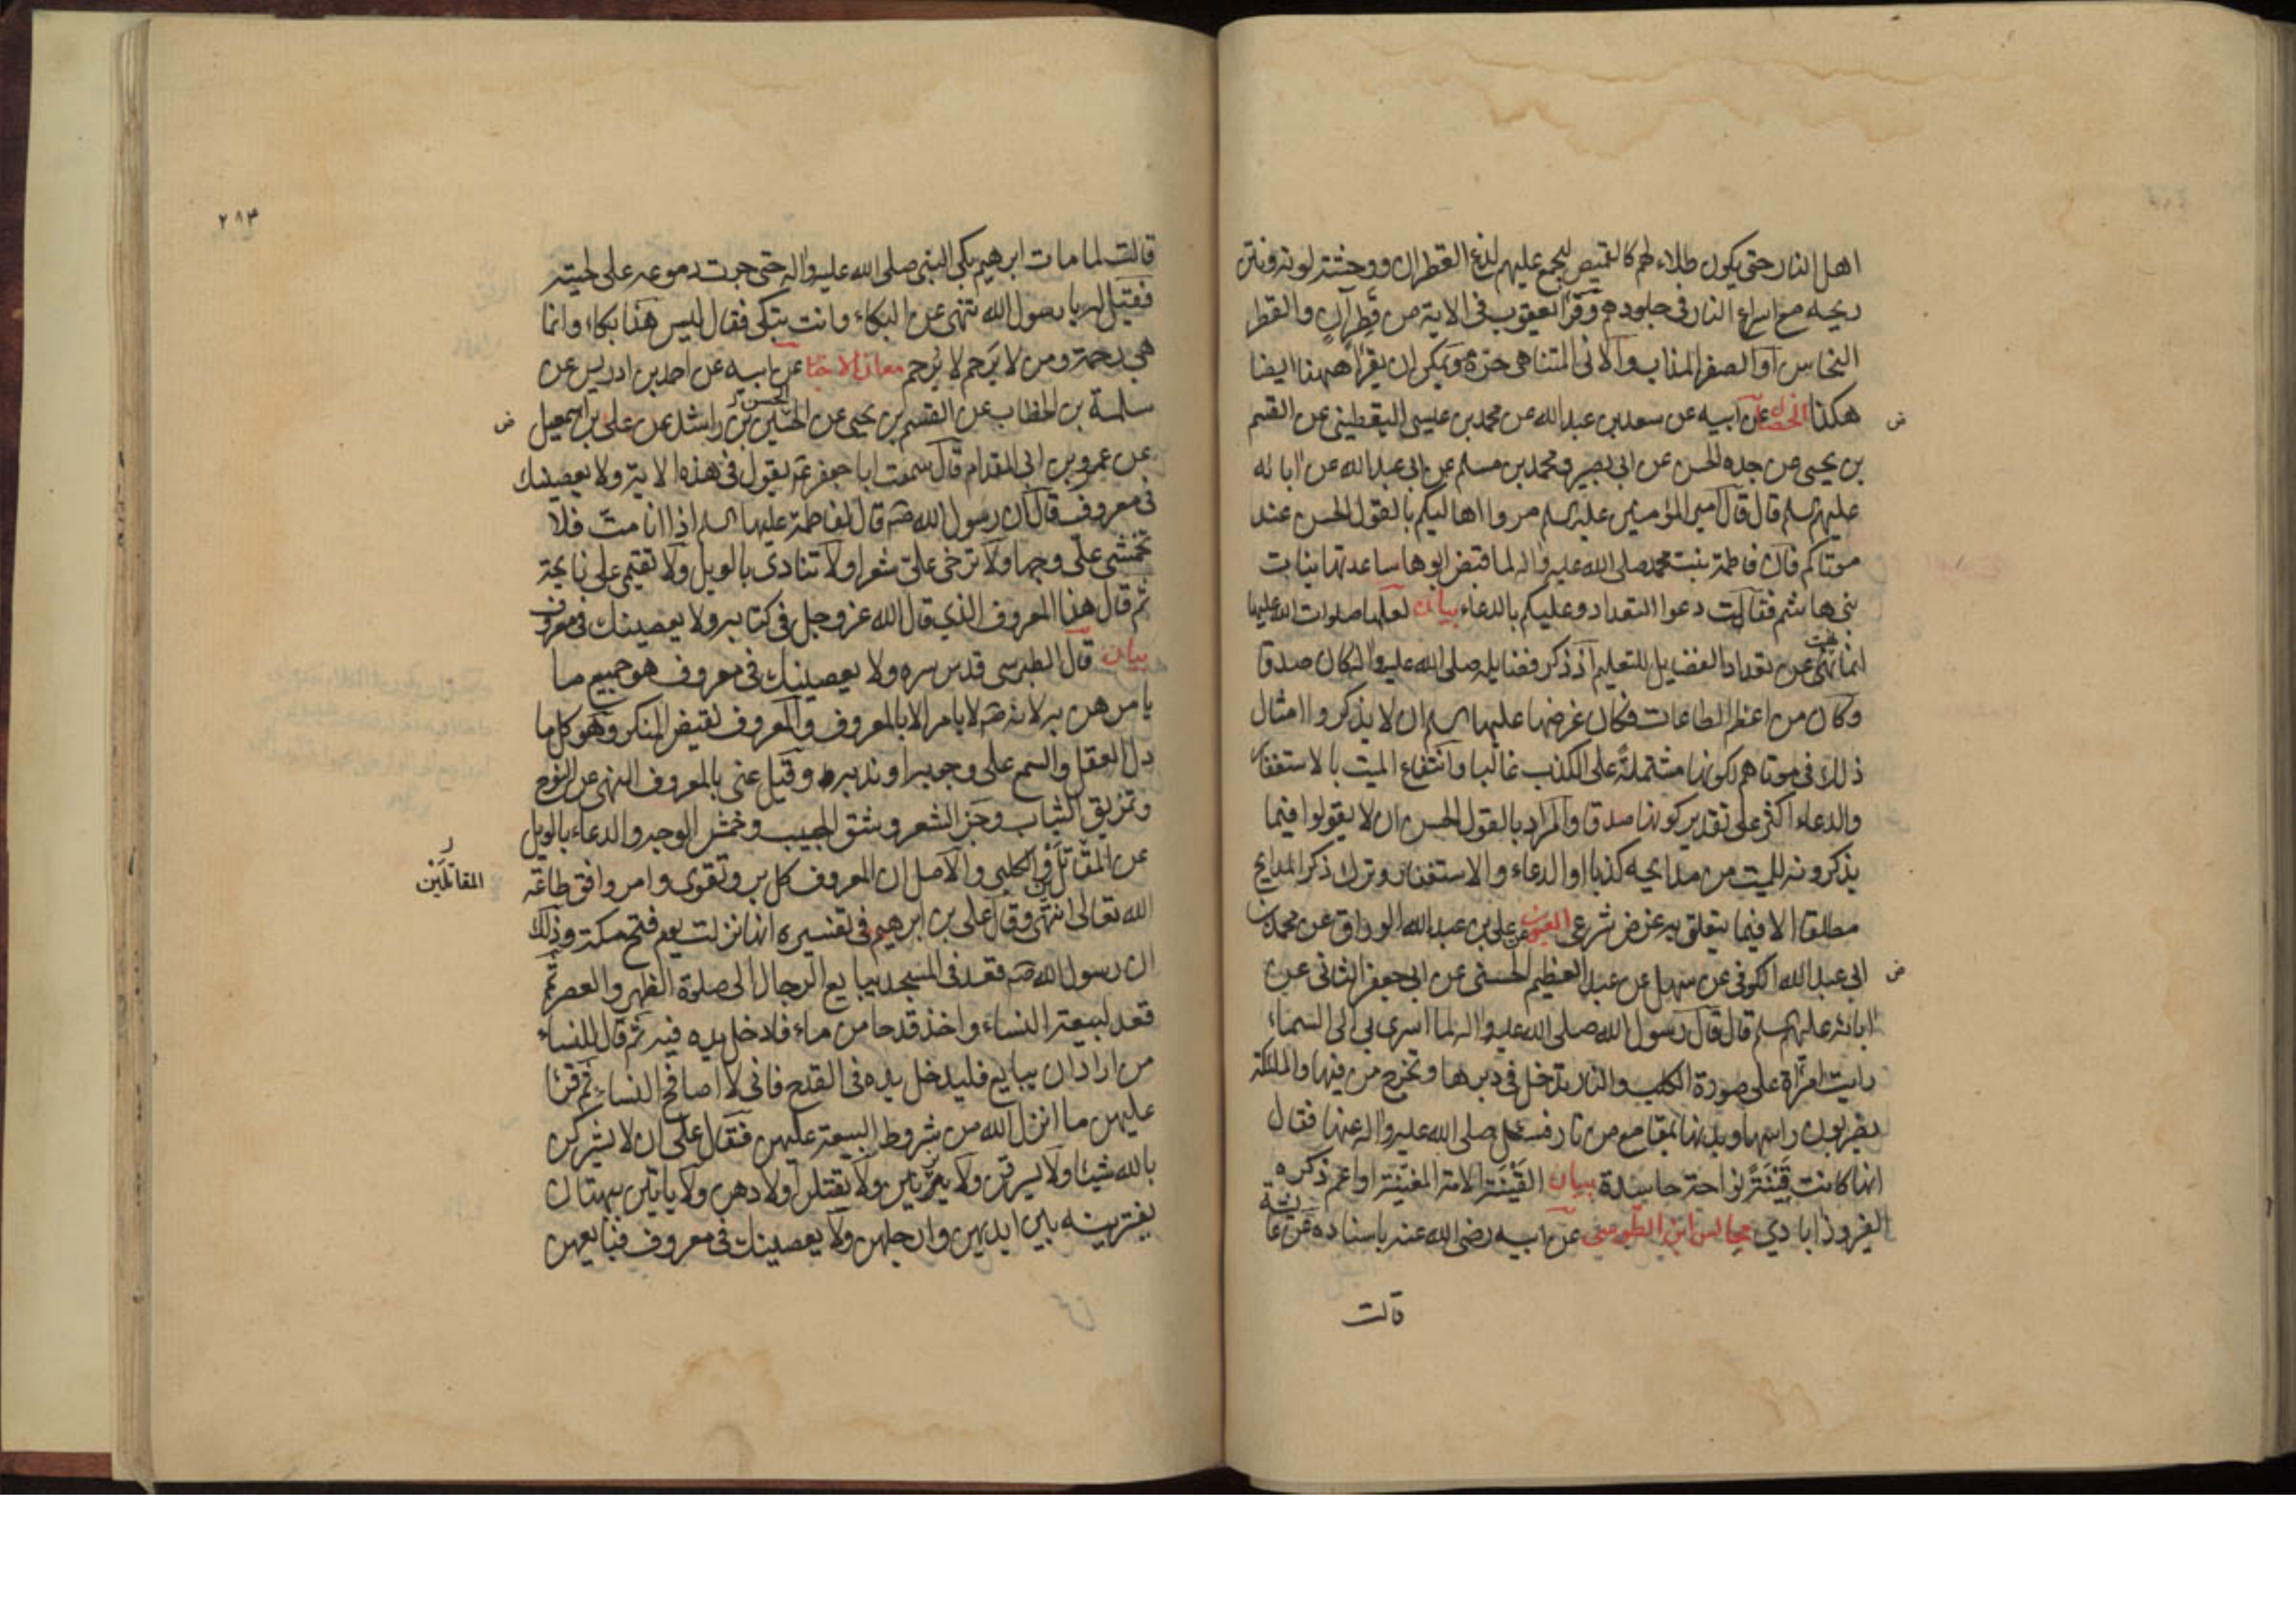 اهل النار حتى يكون طلاء لهم كالقميص ليجمع عليهم لذع القطران ووحشة لونه ونتن
ريحه مع اسراع النار في جلودهم وقرأ يعقوب في الاية من قطر آن والقطر
النحاس او الصفر المذاب والآنى المتناهى حره ويمكن ان يقرأ ههنا ايضا
هكذا الخصال عن ابيه عن سعد بن عبد الله عن محمد بن عيسى اليقطيني عن القسم
بن يحيى عن جده الحسن عن ابى بصير ومحمد بن مسلم عن ابى عبد الله عن ابائه
عليهم السلم قال قال امير المؤمنين عليه السلم مروا اهاليكم بالقول الحسن عند
موتاكم فان فاطمة بنت محمد صلى الله عليه واله لما قبض ابوها ساعدتها بنات
بنى هاشم فقالت دعوا التعداد وعليكم بالدعاء بيان لعلها صلوات الله عليها
انما نهت عن تعداد الفضايل للتعليم اذ ذكر فضايله صلى الله عليه واله كان صدقا
وكان من اعظم الطاعات فكان غرضها عليها السلم ان لا يذكروا امثال
ذلك في موتاهم لكونها مشتملة على الكذب غالبا وانتفاع الميت بالاستغفار
والدعاء اكثر على تقدير كونها صدقا والمراد بالقول الحسن ان لا يقولوا فيما
يذكرونه للميت من مدايحه كذبا او الدعاء والاستغفار وترك ذكر المدايح
مطلقا الا فيما يتعلق به غرض شرعى العيون عن على بن عبد الله الوراق عن محمد بن
ابى عبد الله الكوفى عن سهل عن عبد العظيم الحسنى عن ابى جعفر الثانى عن
ابائه عليهم السلم قال قال رسول الله صلى الله عليه واله لما اسرى بى الى السماء
رايت امرأة على صورة الكلب والنار تدخل في دبرها وتخرج من فيها والملئكة
يضربون راسها وبدنها بمقامع من نار فسئل صلى الله عليه واله عنها فقال
انها كانت قينة نواحة حاسدة بيان القينة الامة المغنية او اعم ذكره
الفيروزابادي مجالس ابن الطوسى عن ابيه رضى الله عنه باسناده عن عائشة
قالت
٢٨٣
قالت لما مات ابرهيم بكى النبى صلى الله عليه واله حتى جرت دموعه على لحيته
فقيل له يا رسول الله تنهى عن البكاء وانت تبكى فقال ليس هذا بكاء وانما
هي رحمة ومن لا يرحم لا يرحم معانى الاخبار عن ابيه عن احمد بن ادريس عن
سلمة بن الخطاب عن القسم بن يحيى عن الحسين بن راشد عن على بن اسمعيل
الحسن
عن عمرو بن ابى المقدام قال سمعت ابا جعفر ع يقول في هذه الاية ولا يعصينك
في معروف قال ان رسول الله ص قال لفاطمة عليها السلم اذا انا مت فلا
تخمشى على وجها ولا ترخى على شعرا ولا تنادى بالويل ولا تقيمى على نايحة
ثم قال هذا المعروف الذي قال الله عز وجل في كتابه ولا يعصينك في معروف
بيان قال الطبرسى قدس سره ولا يعصينك في معروف هو جميع ما
يامرهن به لانه ص لا يامر الا بالمعروف والمعروف نقيض المنكر وهو كل ما
دل العقل والسمع على وجوبه او ندبه وقيل عنى بالمعروف النهى عن النوح
وتمزيق الثياب وجز الشعر وشق الجيب وخمش الوجه والدعاء بالويل
عن المقاتلين والكلبى والاصل ان المعروف كل بر وتقوى وامر وافق طاعة
المقاتلين
الله تعالى انتهى وقال على بن ابرهيم في تفسيره انها نزلت يوم فتح مكة وذلك
ان رسول الله ص قعد في المسجد يبايع الرجال الى صلوة الظهر والعصر ثم
قعد لبيعة النساء واخذ قدحا من ماء فادخل يده فيه ثم قال للنساء
من اراد ان يبايع فليدخل يده في القدح فانى لا اصافح النساء ثم قرأ
عليهن ما انزل الله من شروط البيعة عليهن فقال على ان لا يشركن
بالله شيئا ولا يسرقن ولا يزنين ولا يقتلن اولادهن ولا ياتين ببهتان
يفترينه بين ايديهن وارجلهن ولا يعصينك في معروف فبايعهن